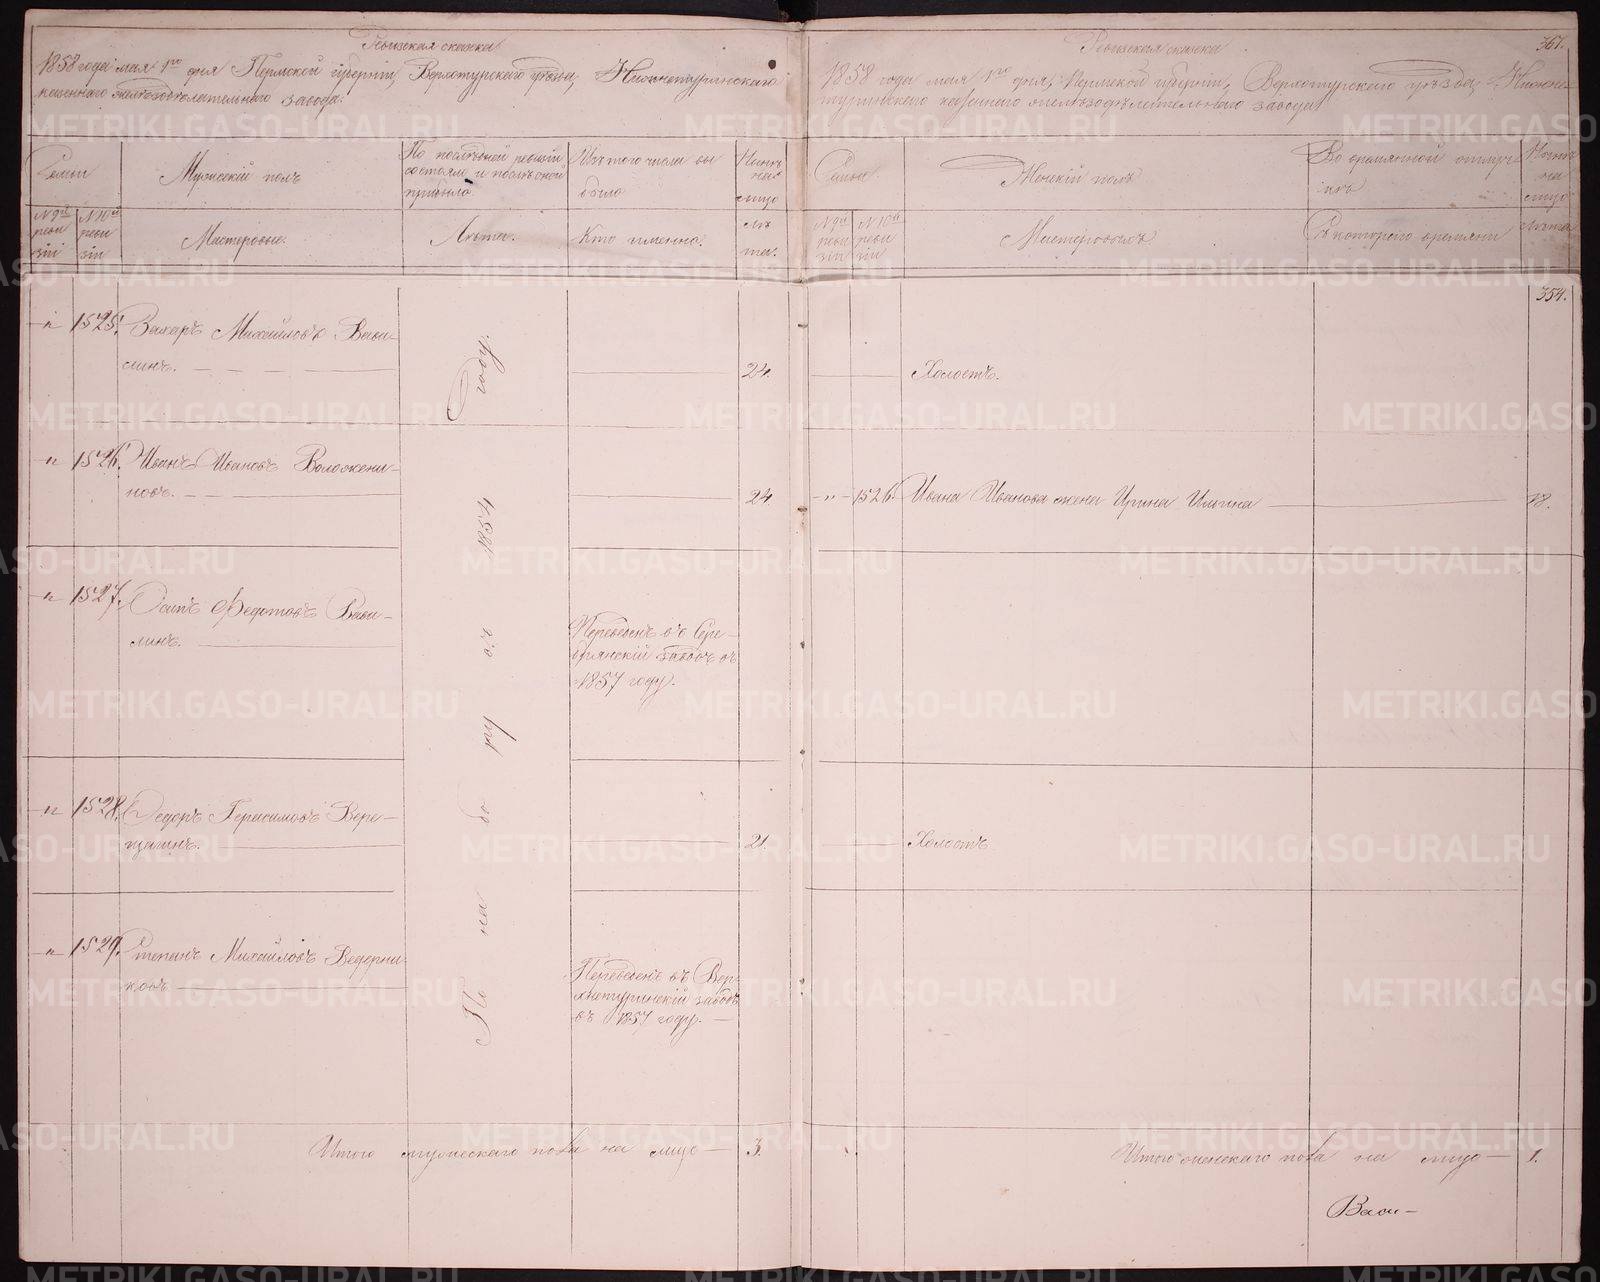 Ревизская сказка
1858 года мая 1го дня Пермской губернiи, Верхотурскаго уѣзда, Нижнетуринскаго
казеннаго желѣзодѣлательнаго завода.
Семьи
Мужескiй полъ
По послѣдней ревизiи
состояло и послѣ оной
прибыло
Изъ того числа вы
было
Нынѣ
на
лицо
№ 9й
ревизiи
№ 10й
ревизiи
Мастеровые.
Лѣта.
Кто именно.
Лѣта.
" 1525. Захаръ Михайловъ Вави-
линъ. 24.
" 1526. Иванъ Ивановъ Воложени-
новъ. 24.
" 1527. Осипъ Федотовъ Вави-
линъ.
Переведенъ въ Сере-
брянскiй заводъ въ
1857 году.
" 1528. Федоръ Герасимовъ Вере-
щагинъ. 21.
" 1529. Степанъ Михайловъ Ведерни-
ковъ
Переведенъ въ Вер-
хнетуринскiй заводъ
въ 1857 году.
По набору въ 1854 году.
Итого мужескаго пола на лицо 3.
Ревизская сказка
367.
1858 года мая 1го дня, Пермской губернiи, Верхотурскаго уѣзда, Нижне-
туринскаго казеннаго желѣзодѣлательнаго завода
Семьи
Женскiй полъ
Во временной отлуч-
кѣ
Нынѣ
на
лицо
№ 9й
ревизiи
№ 10й
ревизiи
Мастеровыхъ
Съ котораго времяни
Лѣта
354.
Холостъ.
" 1526. Ивана Иванова жена Ирина Ильина 18.
Холостъ
Итого женскаго пола на лицо 1.
Васи-
METRIKI.GASO-URAL.RU